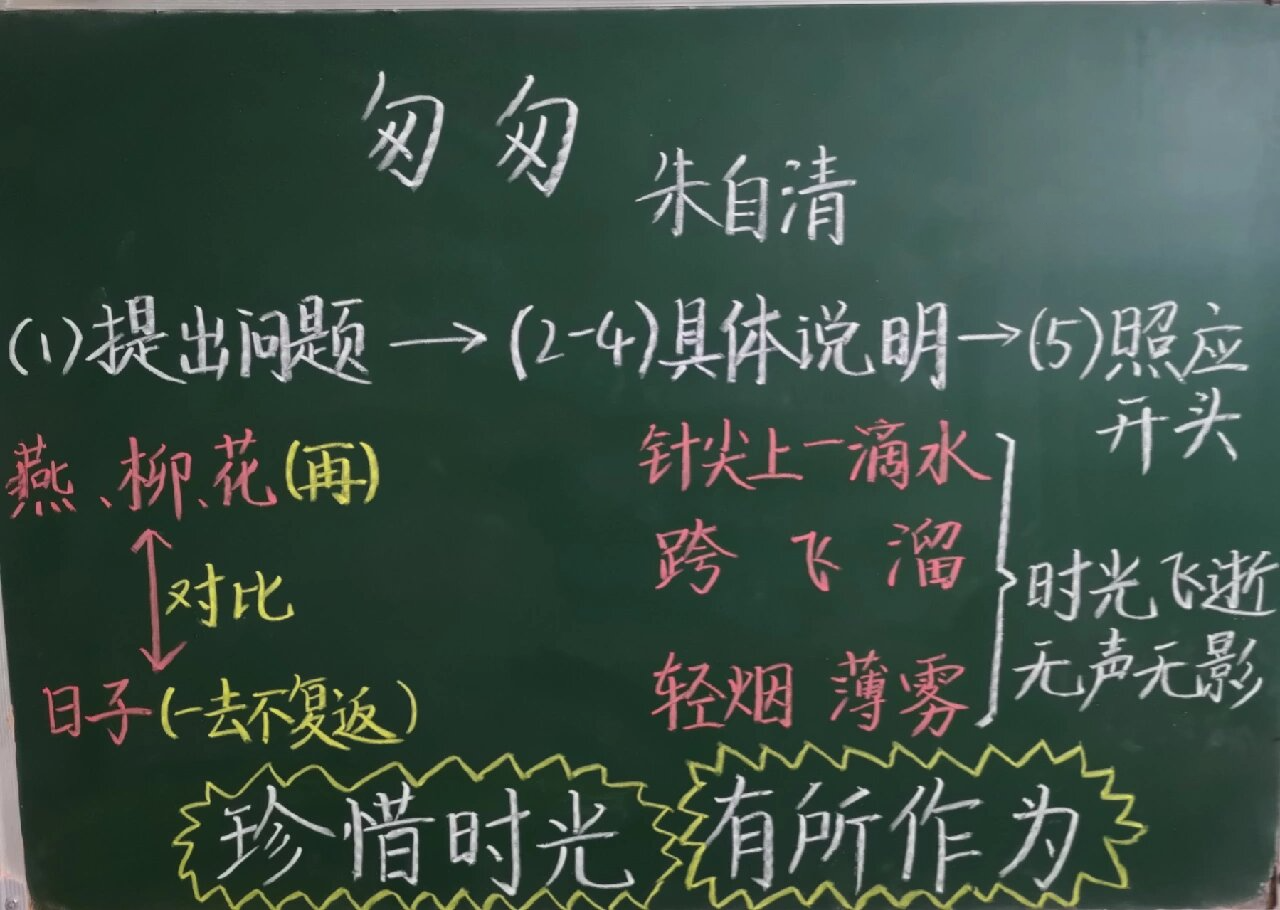 匆匆
朱自清
(1)提出问题→(2-4)具体说明→(5)照应
开头
燕、柳、花(再)
对比
日子(一去不复返)
针尖上一滴水
跨 飞 溜
轻烟 薄雾
时光飞逝
无声无影
珍惜时光 有所作为